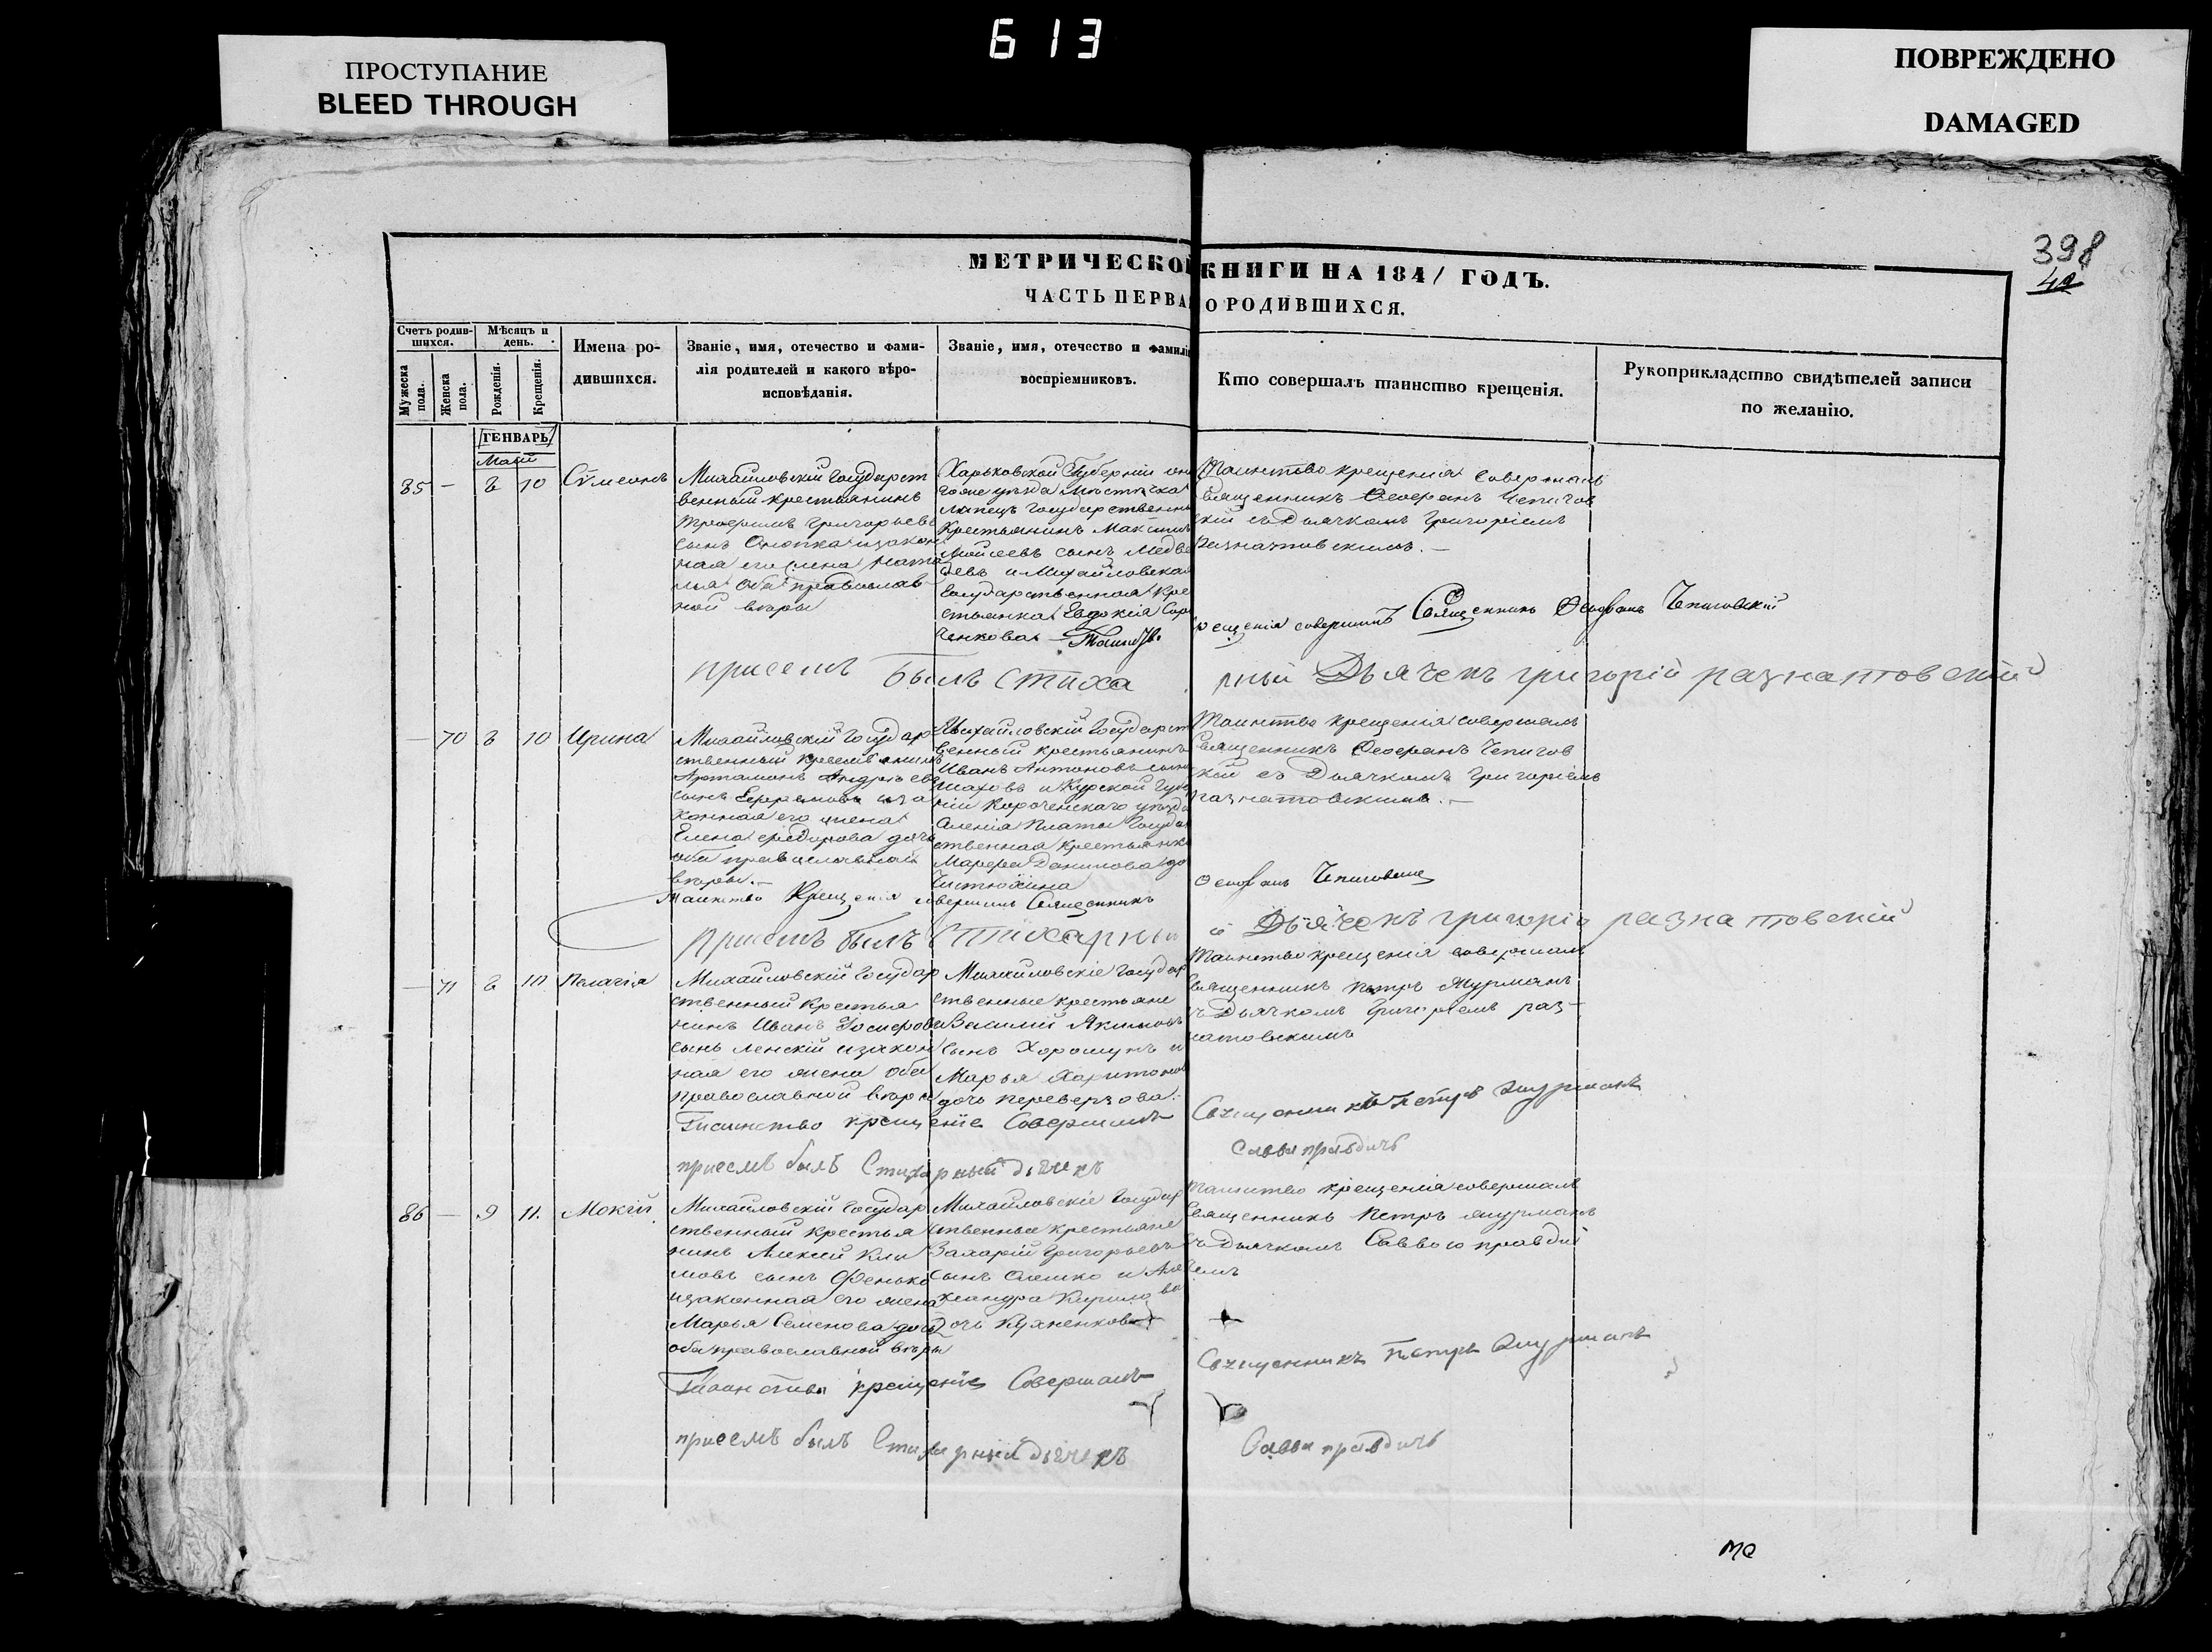 613
ПРОСТУПАНИЕ
BLEED THROUGH
ПОВРЕЖДЕНО
DAMAGED
398
МЕТРИЧЕСКОЙ КНИГИ НА 184/ ГОДЪ.
ЧАСТЬ ПЕРВА О РОДИВШИХСЯ.
Счетъ родив-
шихся.
Мужеска
пола.
Женска
пола.
Мѣсяцъ и
день.
Рожденія.
Крещенія.
Имена ро-
дившихся.
Званіе, имя, отечество и фами-
лія родителей и какого вѣро-
исповѣданія.
Званіе, имя, отечество и фамилія
воспріемниковъ.
Кто совершалъ таинство крещенія.
Рукоприкладство свидѣтелей записи
по желанію.
ГЕНВАРЬ
Маій
85 - 8 10 Сѵмеонъ
Михайловскій Государст
венный крестьянинъ
Трофимъ Григорьевъ
сынъ изакон
ная его жена Ната
лья оба православ
ной вѣры
Харьковской Губерніи
уѣзда
Липецъ Государственны
Крестьянинъ Максимъ
Мойсеевъ сынъ Медве
девъ и Михайловская
Государственная Кре
стьянка Евдокія
ченкова
Таинство крещенія совершалъ
Священникъ Феофанъ Чепигов
скій съ Дьячкомъ Григоріемъ
Разнатовскимъ.-
крещенія совершилъ Священникъ Феофанъ Чепиговскій
присемъ былъ стихарный Дьячекъ григорій разнатовскій
- 70 8 10 Ирина
Михайловскій Государ
ственный крестьянинъ
Артамонъ Андреевъ
сынъ Ефремовъ иза
конная его жена
Елена Федорова дочь
оба православной
вѣры.-
Михайловскій Государст
венный крестьянинъ
Иванъ Антоновъ сынъ
и Курской Губер
ніи Короченскаго уѣзда
Государ
ственная крестьянка
Марфа Данилова до
Чистюхина
Таинство крещенія совершалъ
Священникъ Феофанъ Чепигов
скій съ Дьячкомъ Григоріемъ
Разнатовскимъ.-
Таинство Крещенія совершилъ Священникъ Феофанъ Чепиговскій
присемъ былъ Стихарный Дьячекъ григорій разнатовскій
- 71 8 10 Пелагія
Михайловскій Государ
ственный Крестья
нинъ Иванъ
сынъ Ленскій изакон
ная его жена оба
православной вѣры
Михайловскіе Государ
ственные крестьяне
Василій Якимовъ
сынъ Хорошунъ и
Марья Харитонов
дочь Переверзова.
Таинство крещенія совершалъ
Священникъ Петръ Журманъ
съ Дьячкомъ Григоріемъ раз-
натовскимъ
Таинство крещеніе Совершилъ Священникъ Петръ Жургманъ
присемъ былъ Стихарный дьячекъ Савва правдичъ
86 - 9 11. Мокій
Михайловскій Государ
ственный крестья
нинъ Алексей Кли
мовъ сынъ Фенько
изаконная его жена
Марья Семенова дочь
оба православной вѣры
Михайловскіе Государ
ственные крестьяне
Захарій Григорьевъ
сынъ Олешко и Але
ксандра Кирилова
дочь
Таинство крещенія совершалъ
Священникъ Петръ Журманъ
съ Дьячкомъ Саввою правди
чемъ
Таинства крещеніе Совершалъ Священникъ Петръ Жургманъ
присемъ былъ Стихарный дьячекъ Савва правдичъ